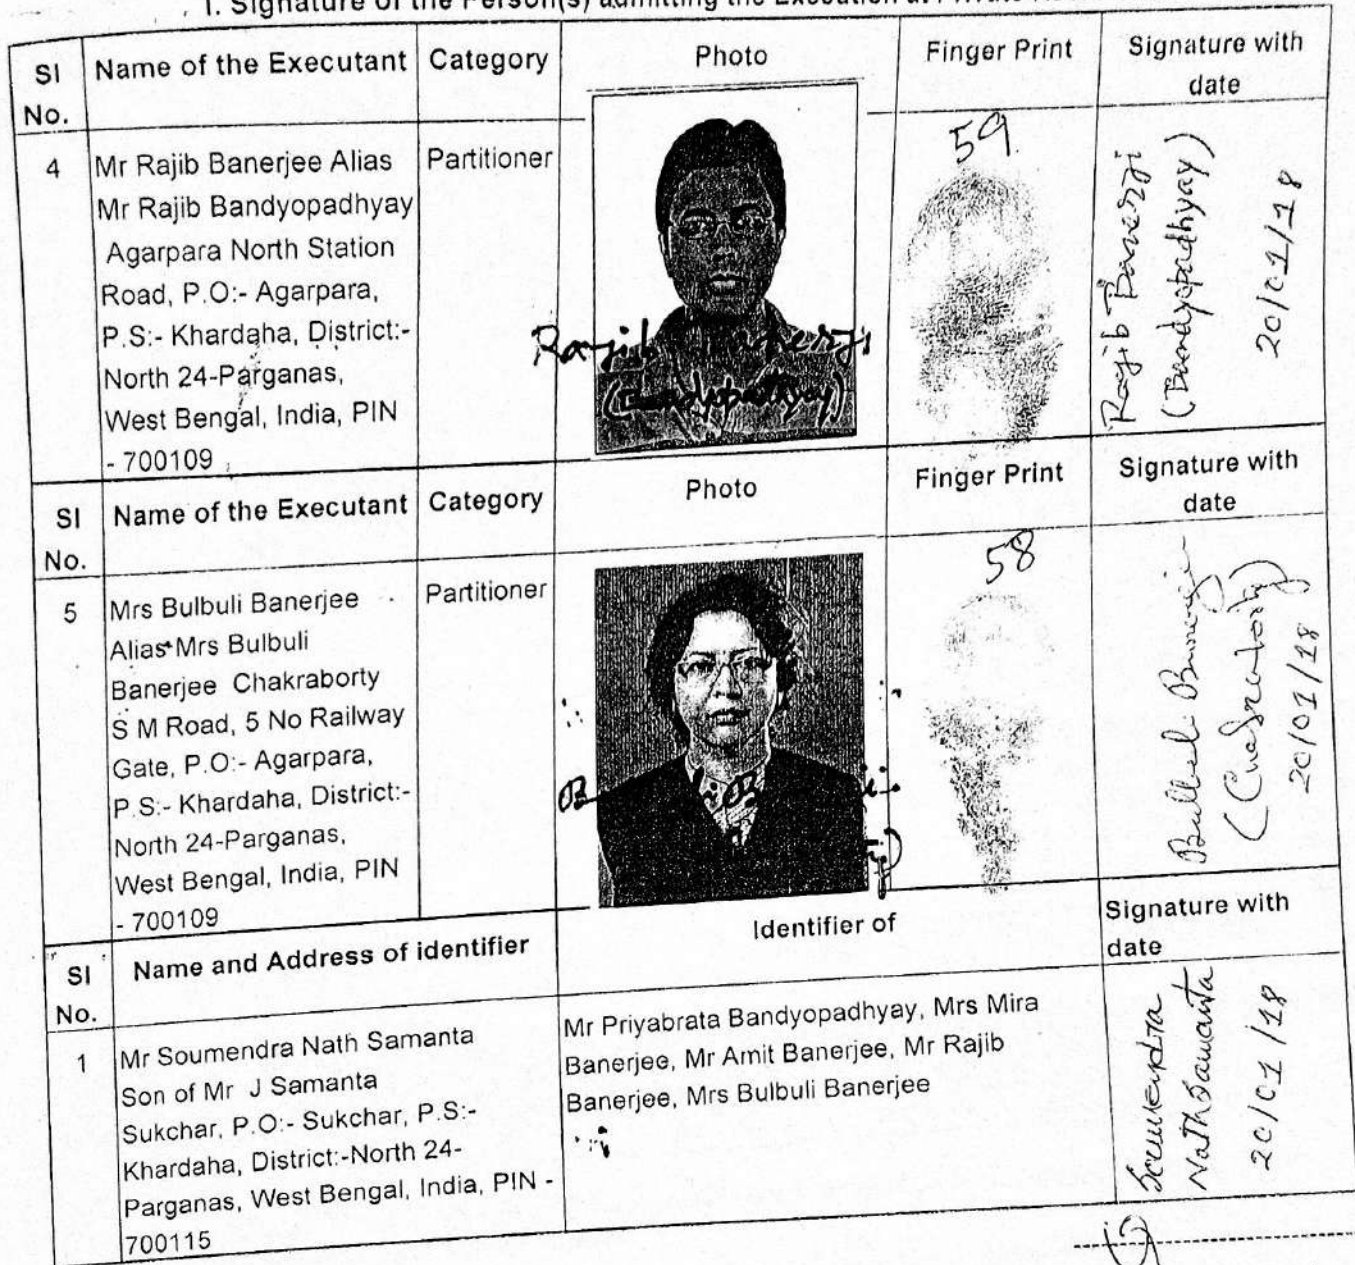 I. Signature of the Person(s) admitting the Execution at Private
SI No.
Name of the Executant
Category
Photo
Finger Print
Signature with date
4
Mr Rajib Banerjee Alias
Mr Rajib Bandyopadhyay
Agarpara North Station
Road, P.O:- Agarpara,
P.S:- Khardaha, District:-
North 24-Parganas,
West Bengal, India, PIN
- 700109
Partitioner
Rajib Banerji
(Bandyopadhyay)
59
Rajib Banerji
(Bandyopadhyay)
20/01/18
SI No.
Name of the Executant
Category
Photo
Finger Print
Signature with date
5
Mrs Bulbuli Banerjee
Alias Mrs Bulbuli
Banerjee Chakraborty
S M Road, 5 No Railway
Gate, P.O:- Agarpara,
P.S:- Khardaha, District:-
North 24-Parganas,
West Bengal, India, PIN
- 700109
Partitioner
58
Bulbuli Banerji
(Chakraborty)
20/01/18
SI No.
Name and Address of identifier
Identifier of
Signature with date
1
Mr Soumendra Nath Samanta
Son of Mr J Samanta
Sukchar, P.O:- Sukchar, P.S:-
Khardaha, District:-North 24-
Parganas, West Bengal, India, PIN -
700115
Mr Priyabrata Bandyopadhyay, Mrs Mira
Banerjee, Mr Amit Banerjee, Mr Rajib
Banerjee, Mrs Bulbuli Banerjee
Soumendra
Nath Samanta
20/01/18